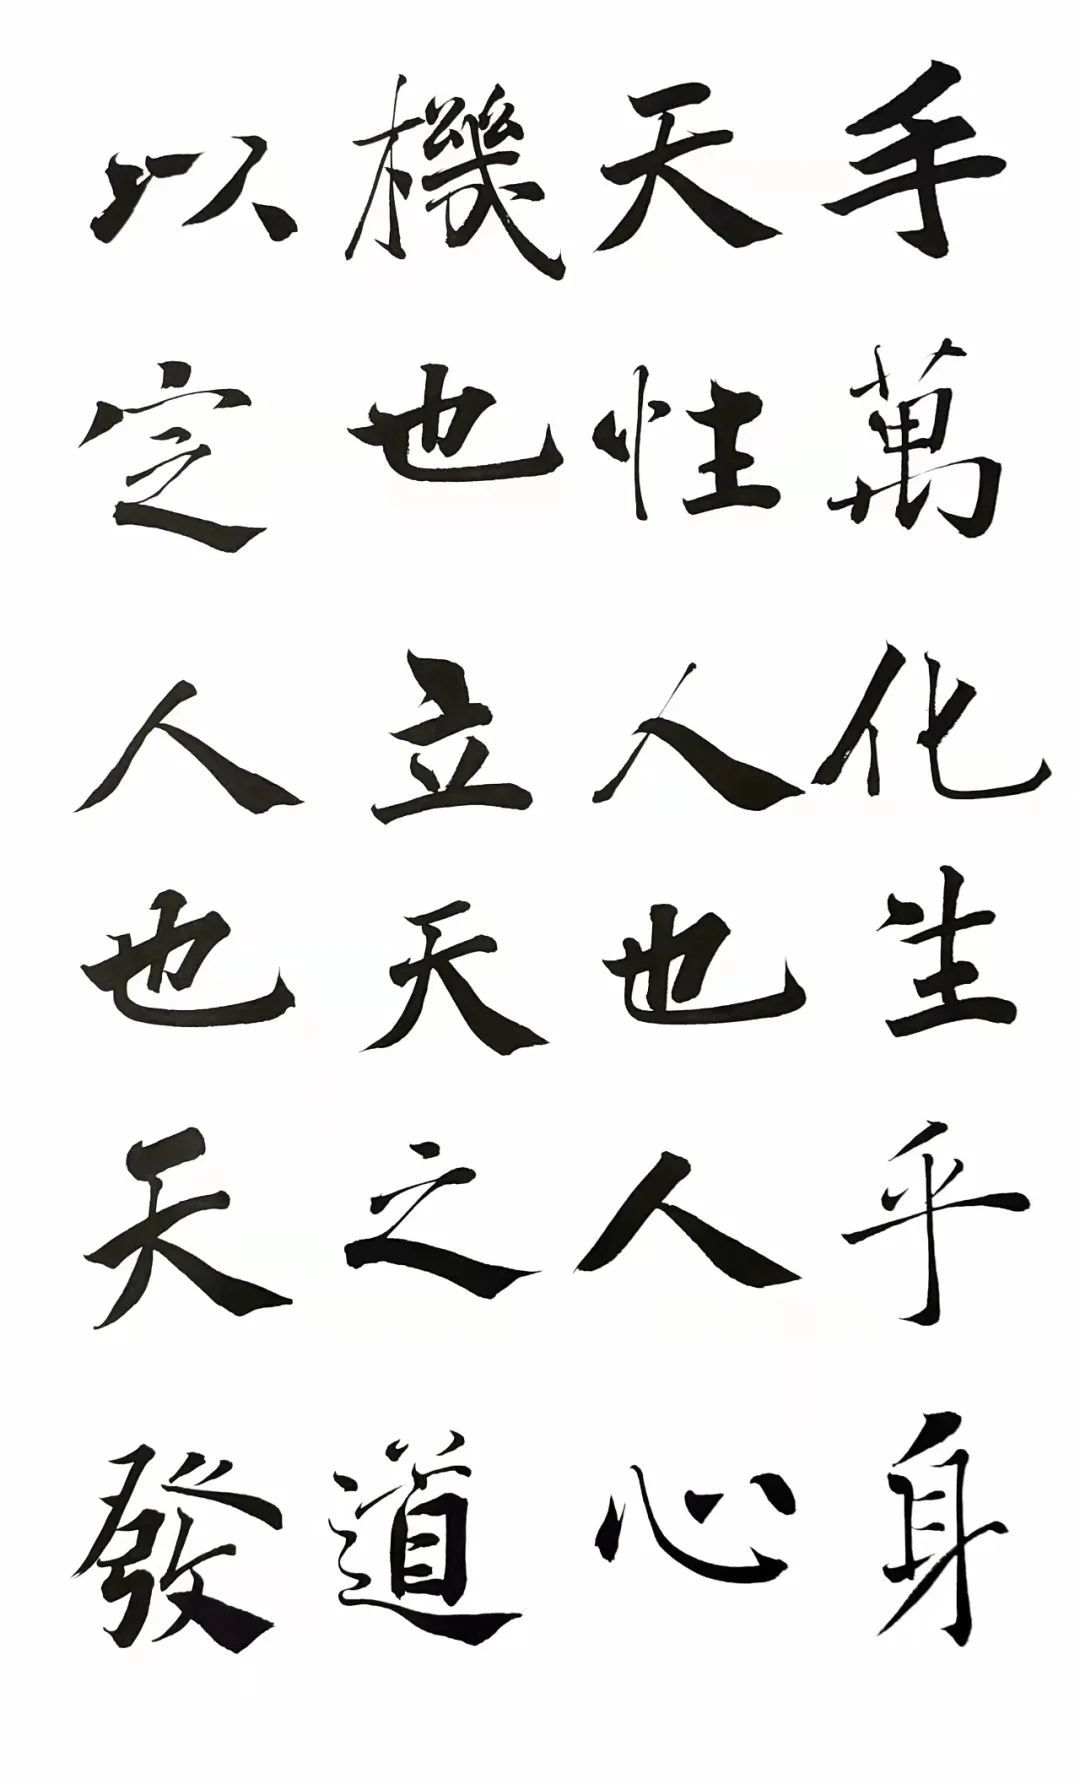 手萬化生乎身
天性人也人心
機也立天之道
以定人也天發